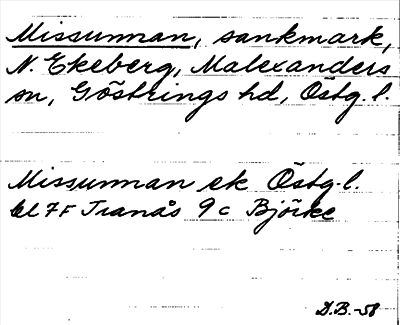 Missunnan, sankmark,
N. Ekeberg, Malexanders
sn, Göstrings hd, Östg. l.
Missunnan ek Östg. l.
bl 7F Tranås 9c Björke
D.B. -58